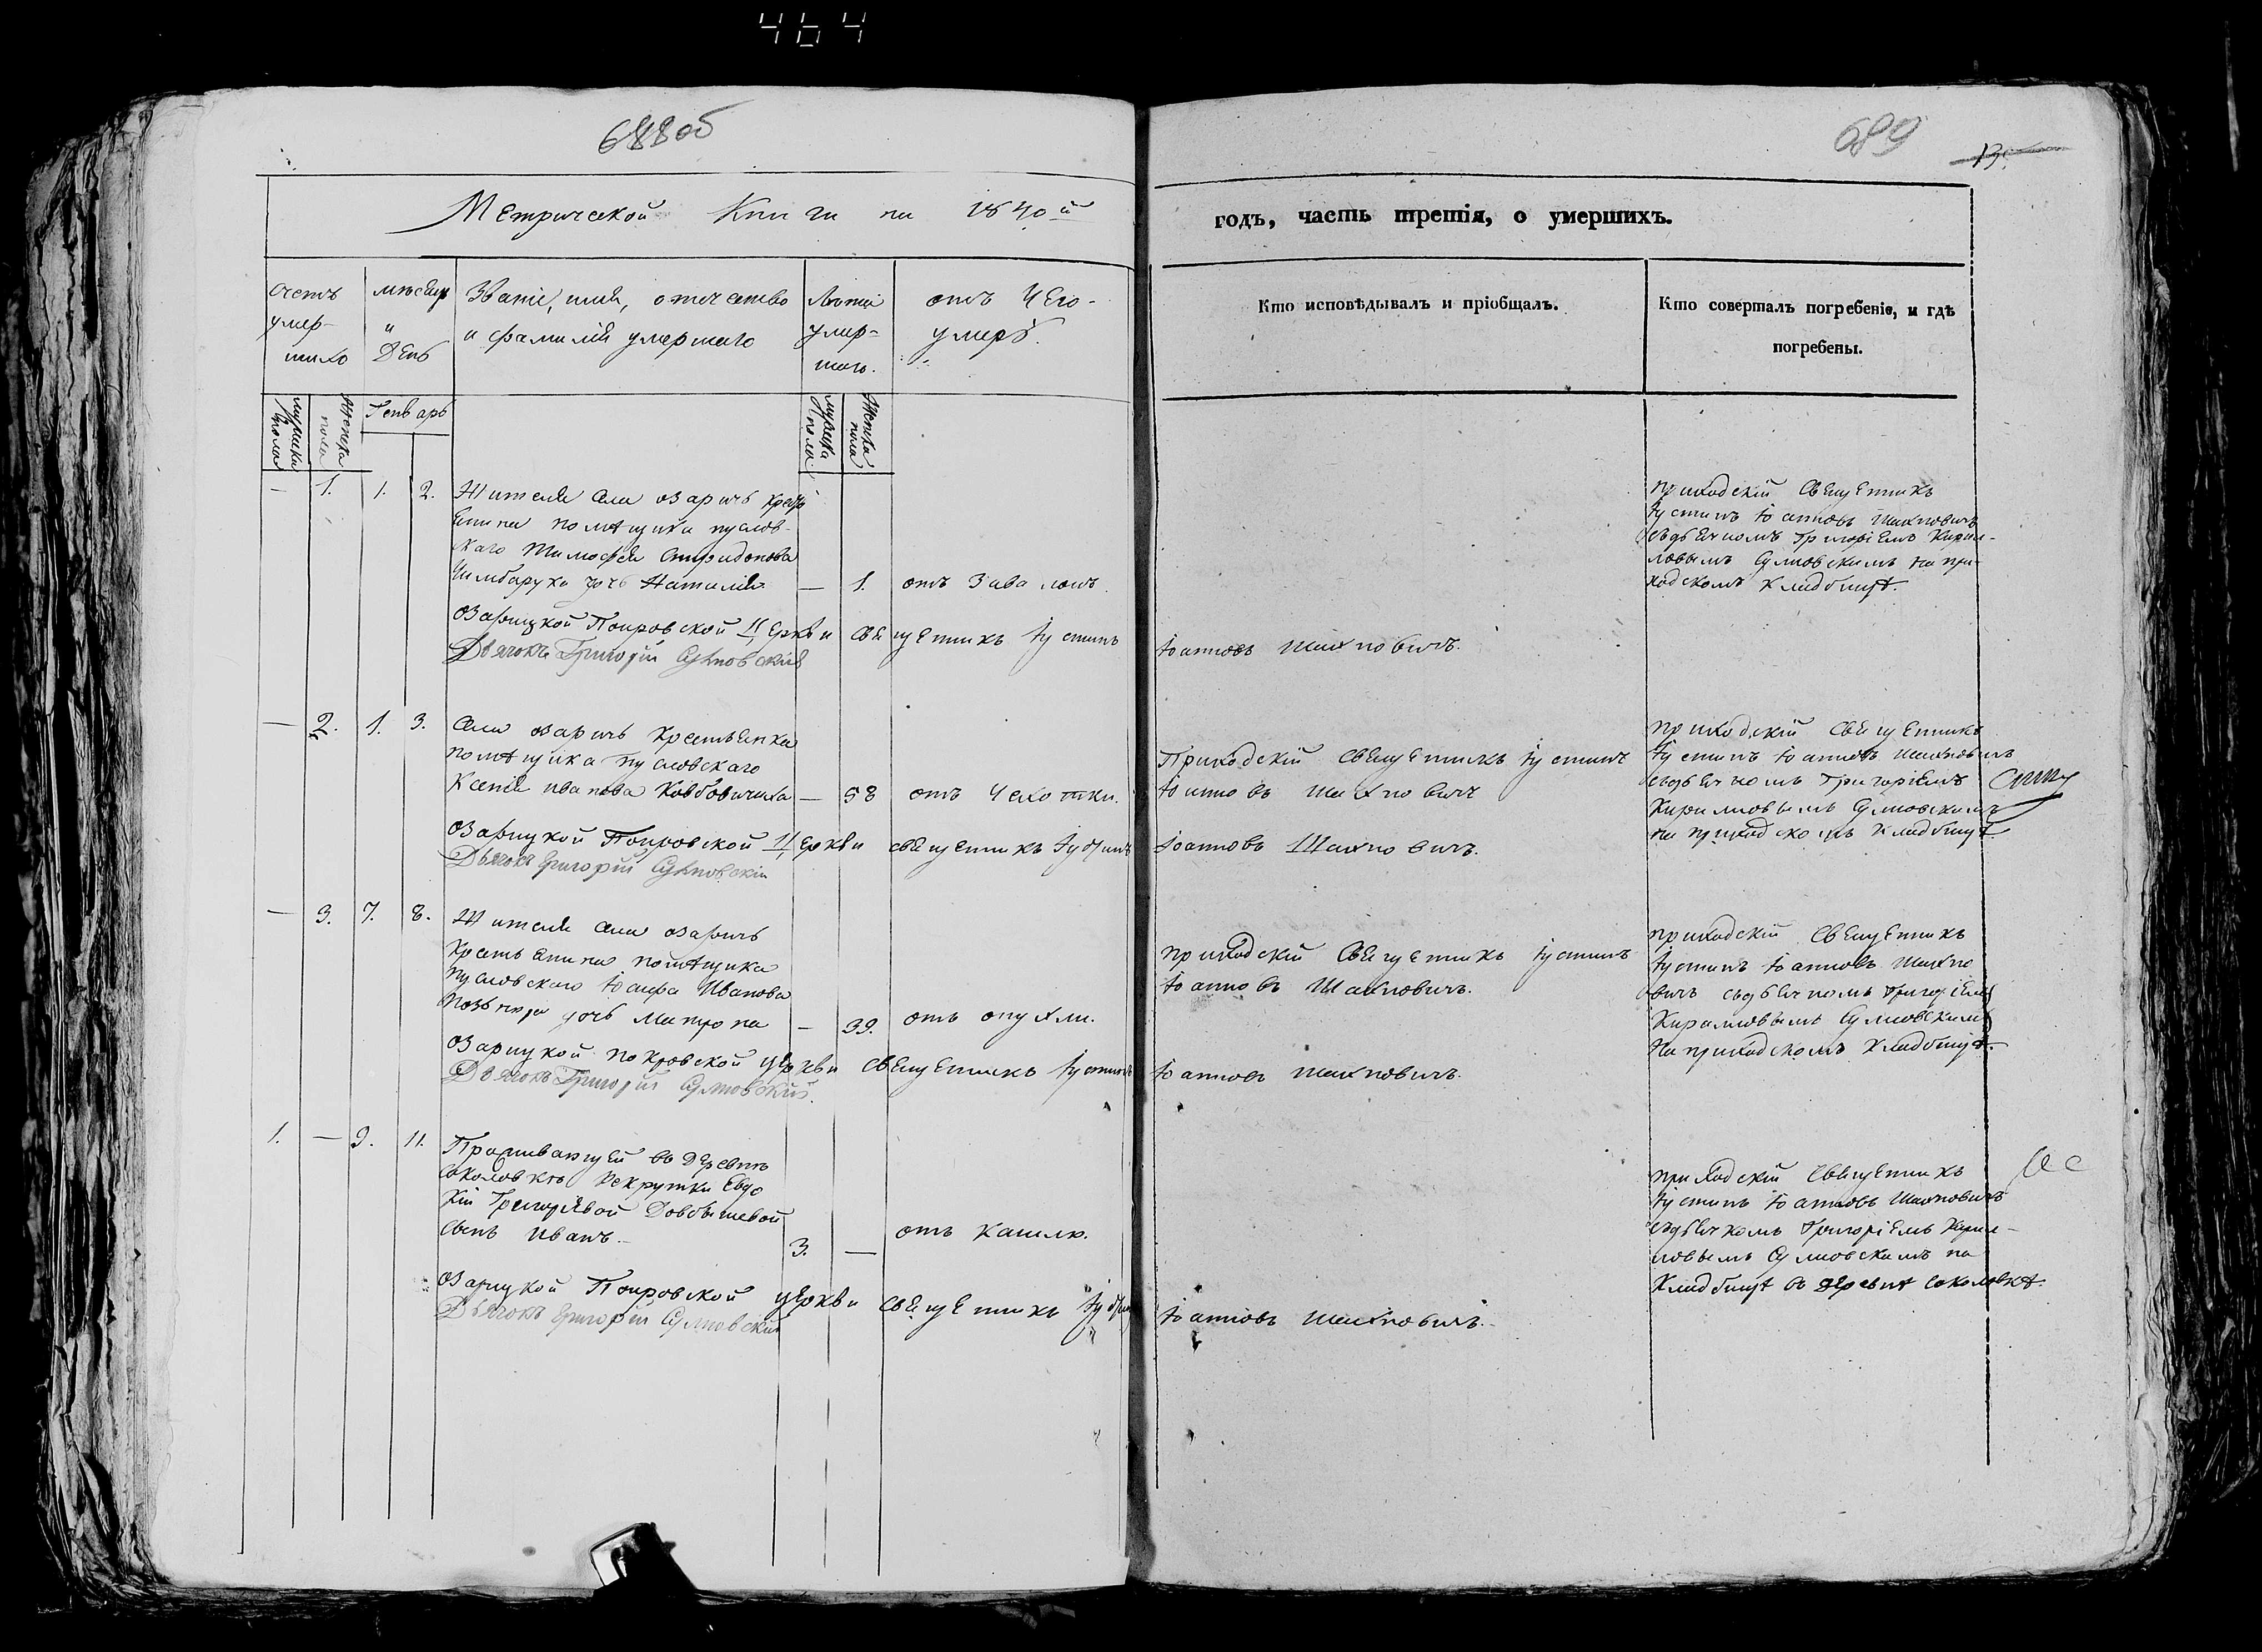 464
688об
689
13
Метрической Книги на 1840й
годъ, часть третія, о умершихъ.
Счетъ умер-шихъ
мѣсяцъ и День
Званіе, имя, отечество и фамилія умершаго
Лѣта умер-шаго.
отъ Чего-умеръ.
Кто исповѣдывалъ и пріобщалъ.
Кто совершалъ погребеніе, и гдѣ погребены.
мужеска пола
Женска пола
Генварь
мужеска пола
Женска пола
— 1. 1. 2.
Жителя села озаричъ крестъ
янина помѣщика пуслов-
скаго Тимофея Спиридонова
Чимбарука дочь Наталія — 1. отъ Завалокъ.
приходскій Священникъ
Іустинъ Іоанновъ Шахновичъ
съдьячкомъ Григоріемъ Кирил-
ловымъ Сулковскимъ на при-
ходскомъ Кладбищѣ.
Озарицкой Покровской Церкви священникъ Іустинъ Іоанновъ Шахновичъ.
Дьячокъ Григорій
— 2. 1. 3.
Села озаричъ Крестьянка
помѣщика Пусловскаго
Ксенія иванова Ковбовичиха — 58 отъ Чахотки.
Приходскій Священникъ Іустинъ
Іоанновъ Шахновичъ
приходскій Священникъ
Іустинъ Іоанновъ Шахновичъ
съдьячкомъ Григоріемъ
Кирилловымъ Сулковскимъ
на приходскомъ Кладбищѣ
Озарицкой Покровской Церкви священникъ Іустинъ Іоанновъ Шахновичъ.
Дьячокъ Григорій
— 3. 7. 8.
Жителя села озаричъ
Крестьянина помѣщика
Пусловскаго Іосифа Иванова
дочь Матрона — 39. отъ опухли.
приходскій Священникъ Іустинъ
Іоанновъ Шахновичъ.
приходскій Священникъ
Іустинъ Іоанновъ Шахно
вичъ съдьячкомъ Григоріемъ
Кирилловымъ Сулковскимъ
На приходскомъ Кладбищѣ.
Озарицкой покровской церкви Священникъ Іустинъ Іоанновъ Шахновичъ.
Дьячокъ Григорій
1. — 9. 11.
Проживающей въ Деревнѣ
соколовкѣ рекрутки Евдо
кіи Григорьевой Довбышевой
сынъ Иванъ. 3. — отъ Кашлю.
приходскій Священникъ
Іустинъ Іоанновъ Шахновичъ
съдьячкомъ Григоріемъ Кирил-
ловымъ Сулковскимъ на
Кладбищѣ въ деревнѣ соколовкѣ.
Озарицкой Покровской церкви Священникъ Іоанновъ Шахновичъ.
Дьячокъ Григорій